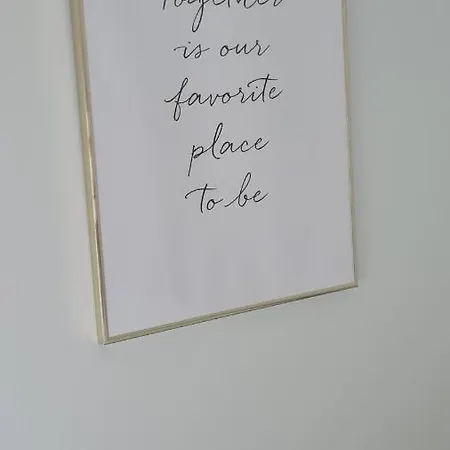 together
is our
favorite
place
to be